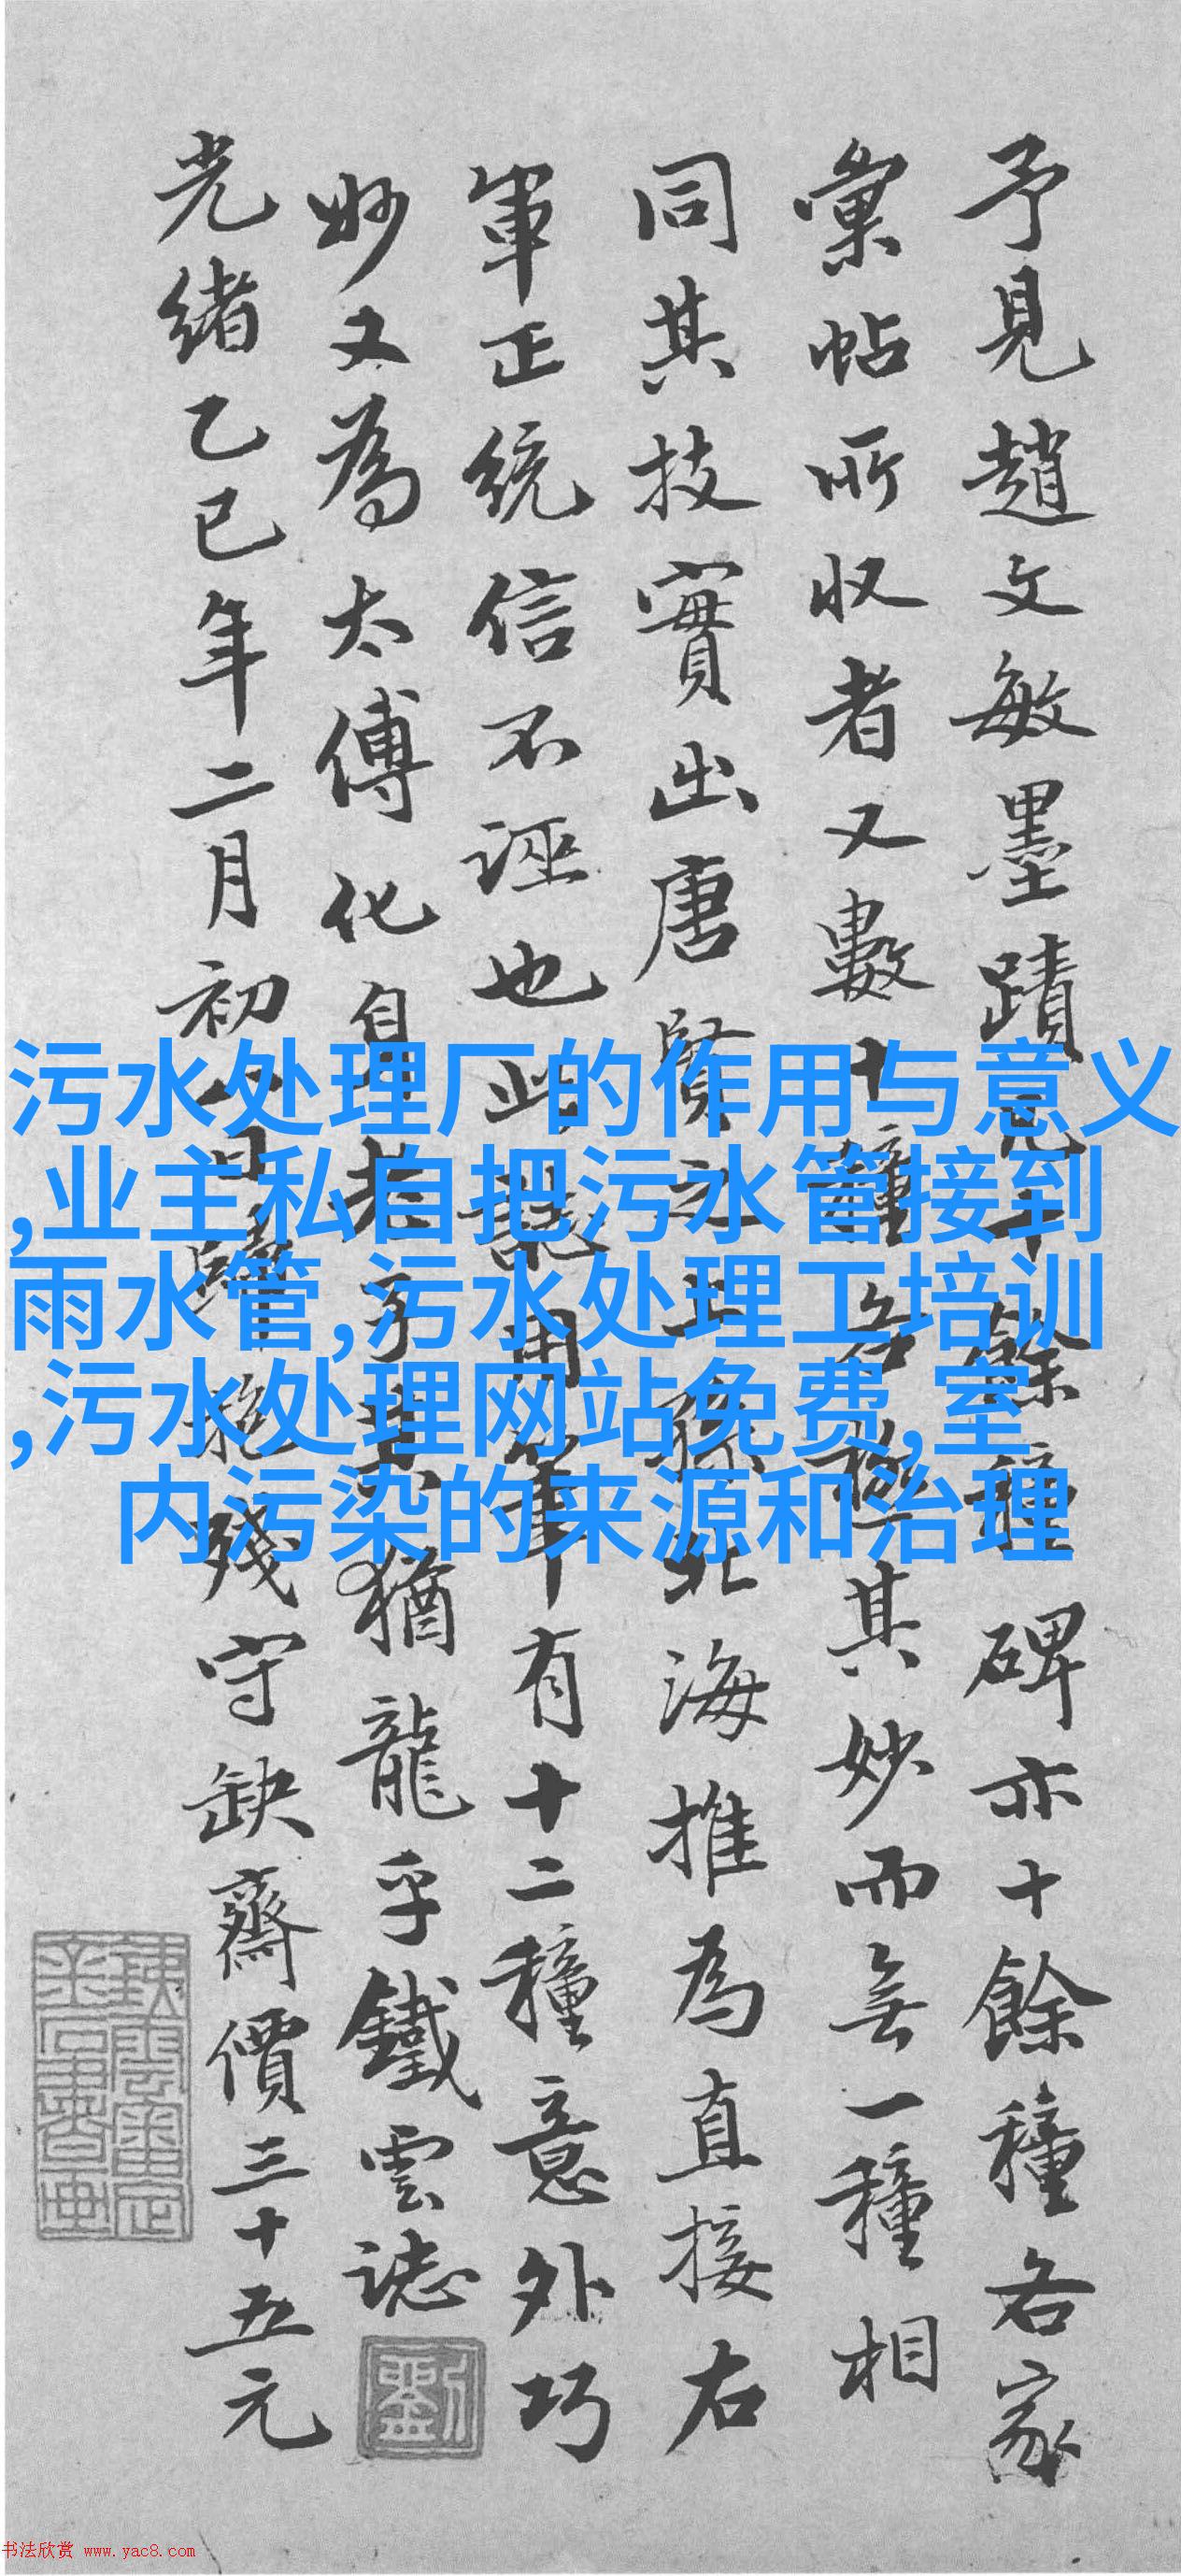 予見趙文敏墨蹟十餘種碑亦十餘種各家
彙帖所収者又數十種各極其妙而無一種相
同其技實出唐賢之上孫北海推為直接右
軍正統信不誣也此用筆有十二種意外巧
妙又為太傅化身老子其猶龍乎鐵雲誌
光緒乙巳年二月初一日歸抱殘守缺齋價三十五元
劉
污水处理厂的作用与意义
,业主私自把污水管接到
雨水管,污水处理工培训
,污水处理网站免费,室
内污染的来源和治理
书法欣赏 www.yac8.com